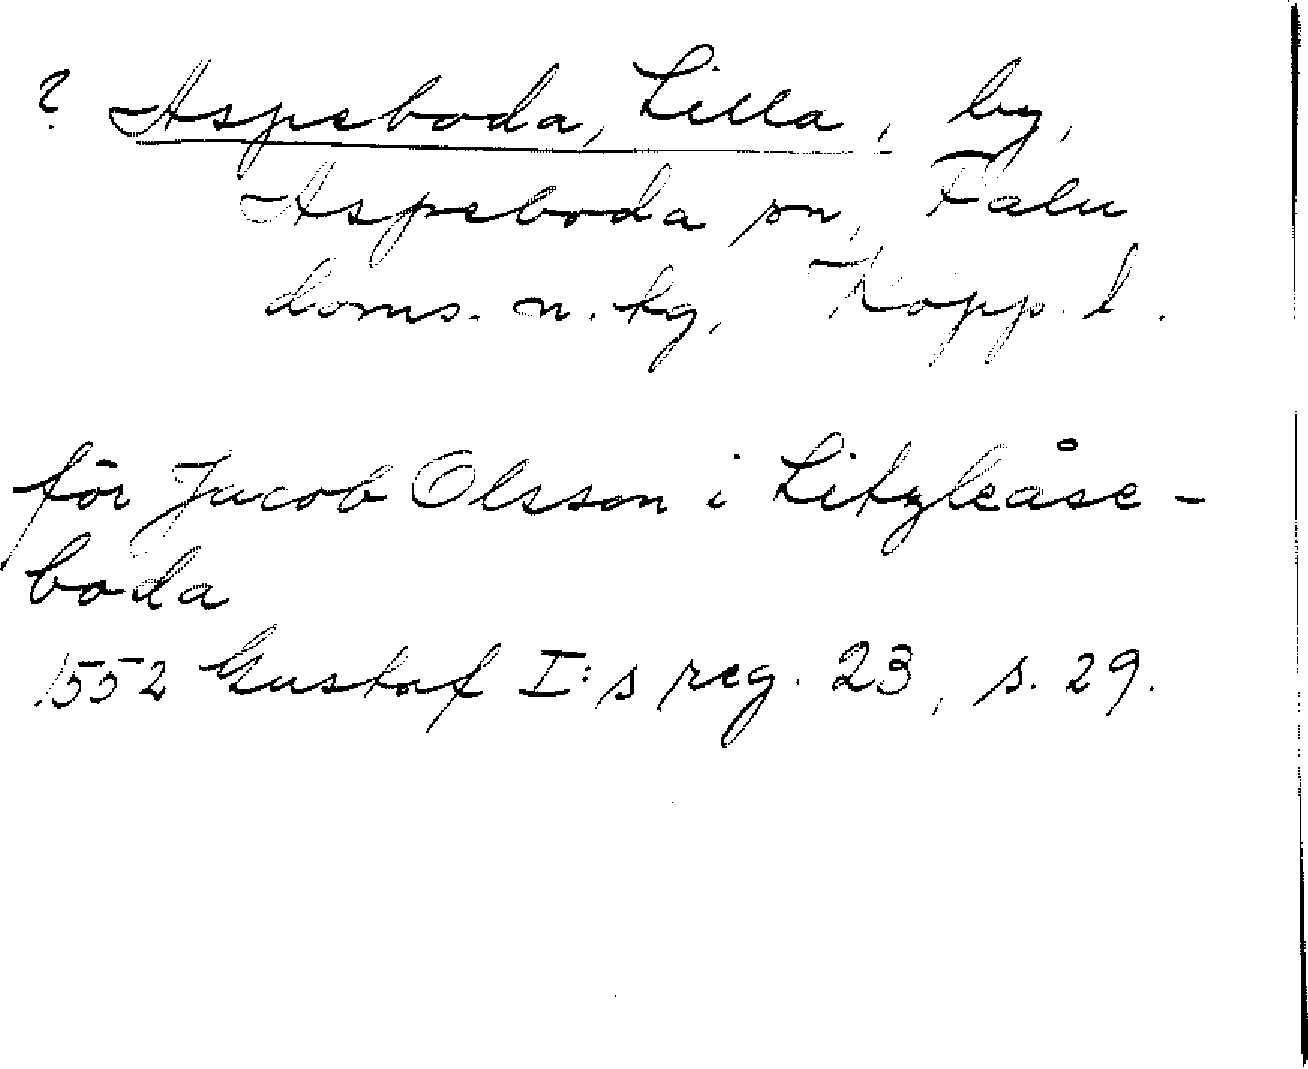 ? Aspeboda, Lilla, by,
Aspeboda sn, Falu
doms. n. tg, Kopp. l.
för Jacob Olsson i Litzleåse-
boda
1552 Gustaf I:s reg. 23, s. 29.